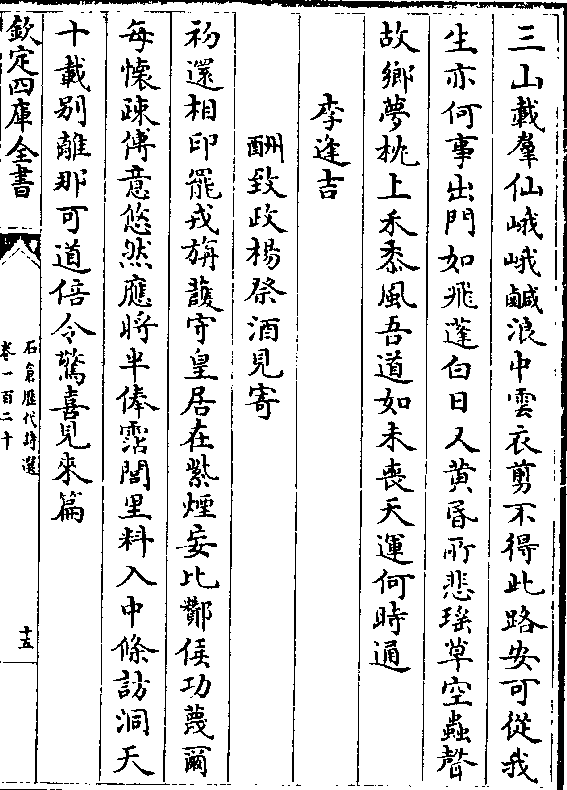 三山載羣仙峨峨鹹浪中雲衣剪不得此路安可從我
生亦何事出門如飛蓬白日又黄昏所悲瑶草空蟲聲
故鄉夢枕上禾黍風吾道如未喪天運何時通
李逢吉
酬致政楊祭酒見寄
初還相印罷戎旃䕶寄皇居在紫煙妄比酇侯功蔑爾
每懷疎傅意悠然應將半俸霑閭里料入中條訪洞天
十載别離那可道倍令驚喜見來篇
欽定四庫全書
石倉歷代詩選
卷一百二十
十五